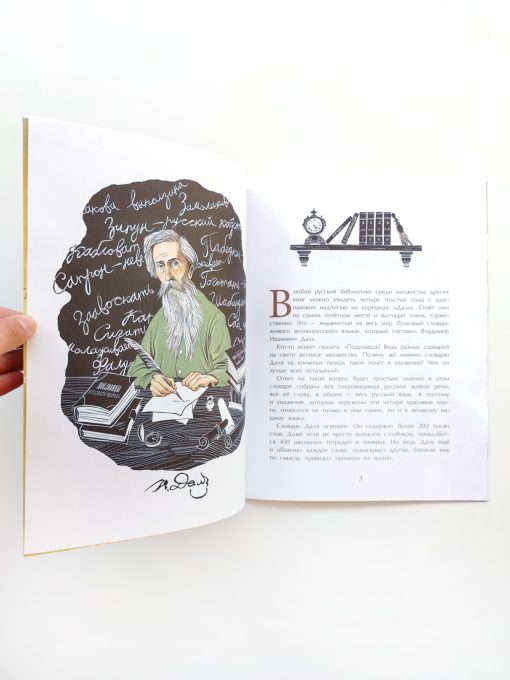 Зипун-русский кафтан
Сапрон-нев
Зазвоскать
Сигать
В любой русской библиотеке среди множества других
книг можно увидеть четыре толстых тома с оди-
наковой надписью на корешках: «Даль». Стоят они
на самом почётном месте и выглядят очень торже-
ственно. Это — знаменитый на весь мир «Толковый словарь
живого великорусского языка», который составил Владимир
Иванович Даль.
Кто-то может сказать: «Подумаешь! Ведь разных словарей
на свете великое множество. Почему же именно словарю
Даля на книжных полках такой почёт и уважение? Чем он
лучше всех остальных?»
Ответ на такой вопрос будет простым: именно в этом
словаре собрана вся сокровищница русской живой речи,
все её слова, в общем — весь русский язык. А поэтому
и уважение, которым окружены эти четыре красивые кни-
ги, относится не только к ним самим, но и к великому на-
шему языку.
Словарь Даля огромен. Он содержит более 200 тысяч
слов. Даже если их просто выписать столбиком, понадобит-
ся 450 школьных тетрадей в линейку. Но ведь Даль ещё
и объяснял каждое слово, подыскивал другие, близкие ему
по смыслу, приводил примеры из жизни.
3
В. Даль